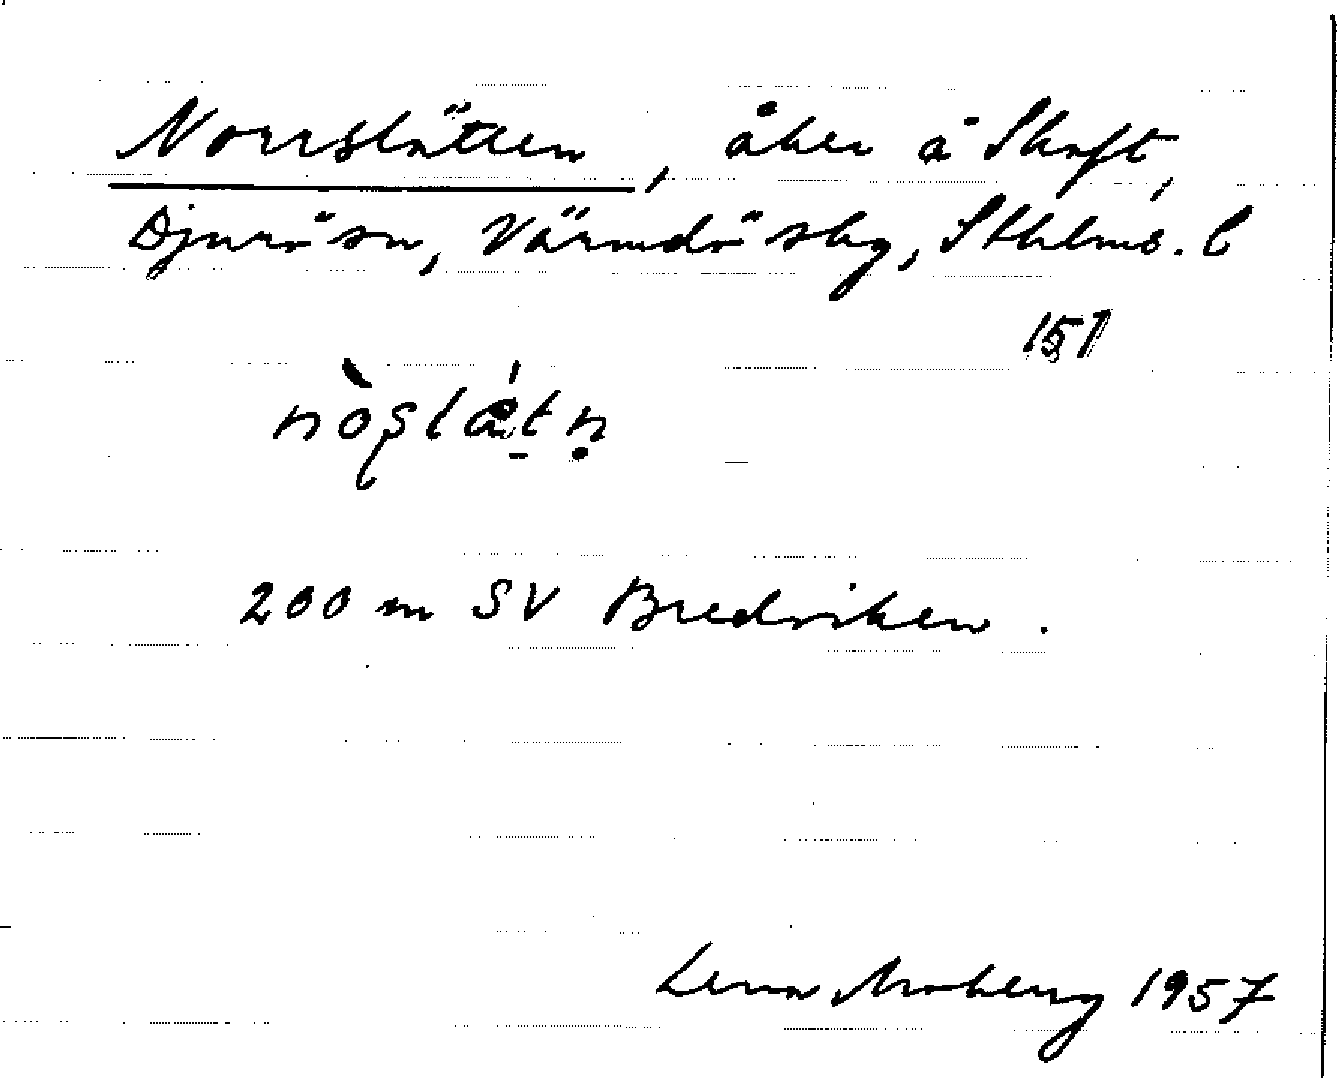 Norrslätten, åker å Skaft,
Djurö sn, Värmdö skg, Sthlms. l
151
nòʂlǽtṇ
200 m SV Bredviken.
Lena Moberg 1957